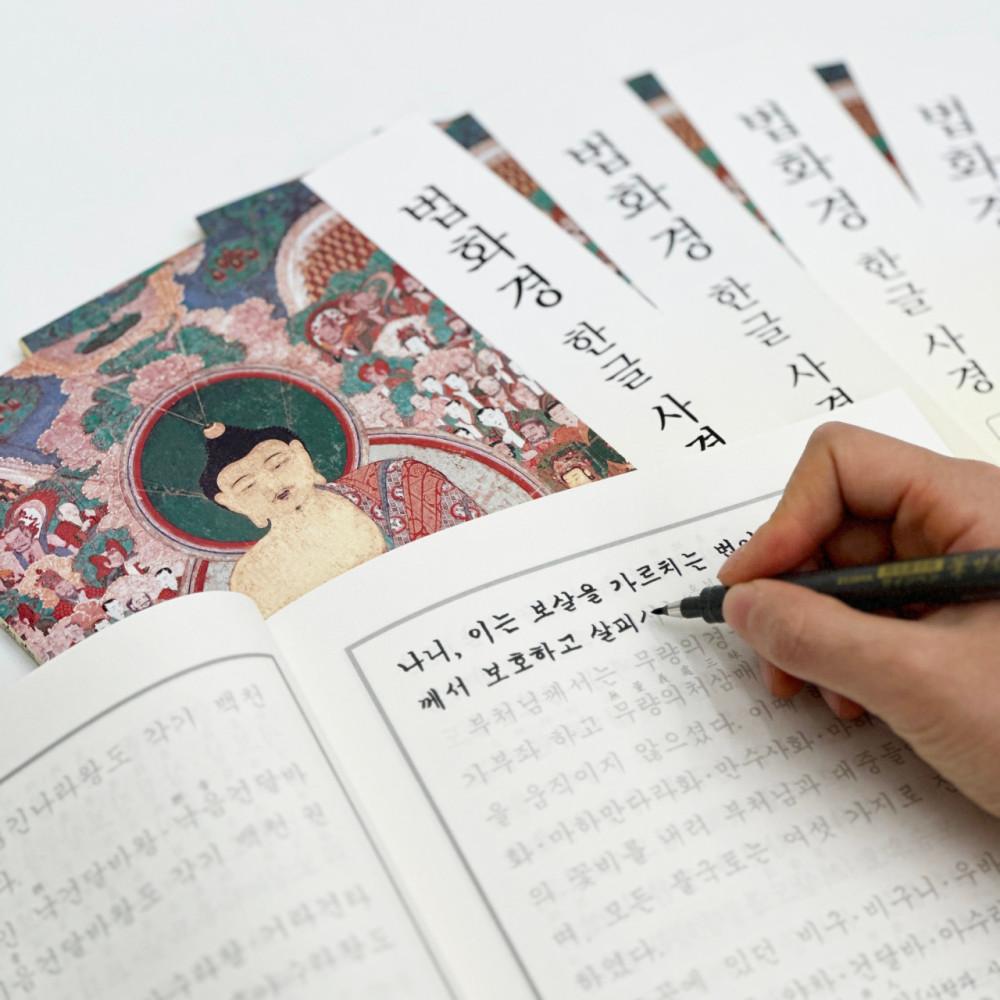 법화경 한글 사경
법화경 한글 사경
법화경 한글 사경
법화
긴나라왕도 각기 백천
다.
낙건달바왕·낙음건달바
음건달바왕도 각기 백천 권
수라왕·거라건타
아수라왕도
나니, 이는 보살을 가르치는
께서 보호하고 살피
부처님께서는 무량의경
가부좌 하고 무량의처삼매
을 움직이지 않으셨다. 이때
화·마하만다라화·만수사화·마하
의 꽃비를 내려 부처님과 대중들
며, 모든 불국토는 여섯 가지로
하였다.
에 있던 비구·비구니·우바
건달바·아수라